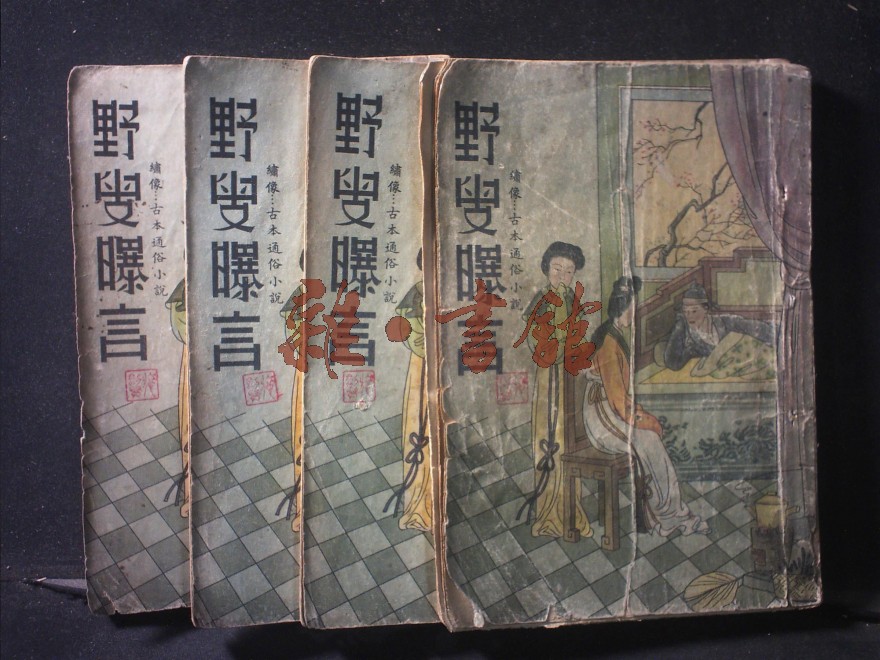 野叟曝言
繡像⋯古本通俗小說
野叟曝言
繡像⋯古本通俗小說
野叟曝言
繡像⋯古本通俗小說
野叟曝言
繡像⋯古本通俗小說
雜·書館